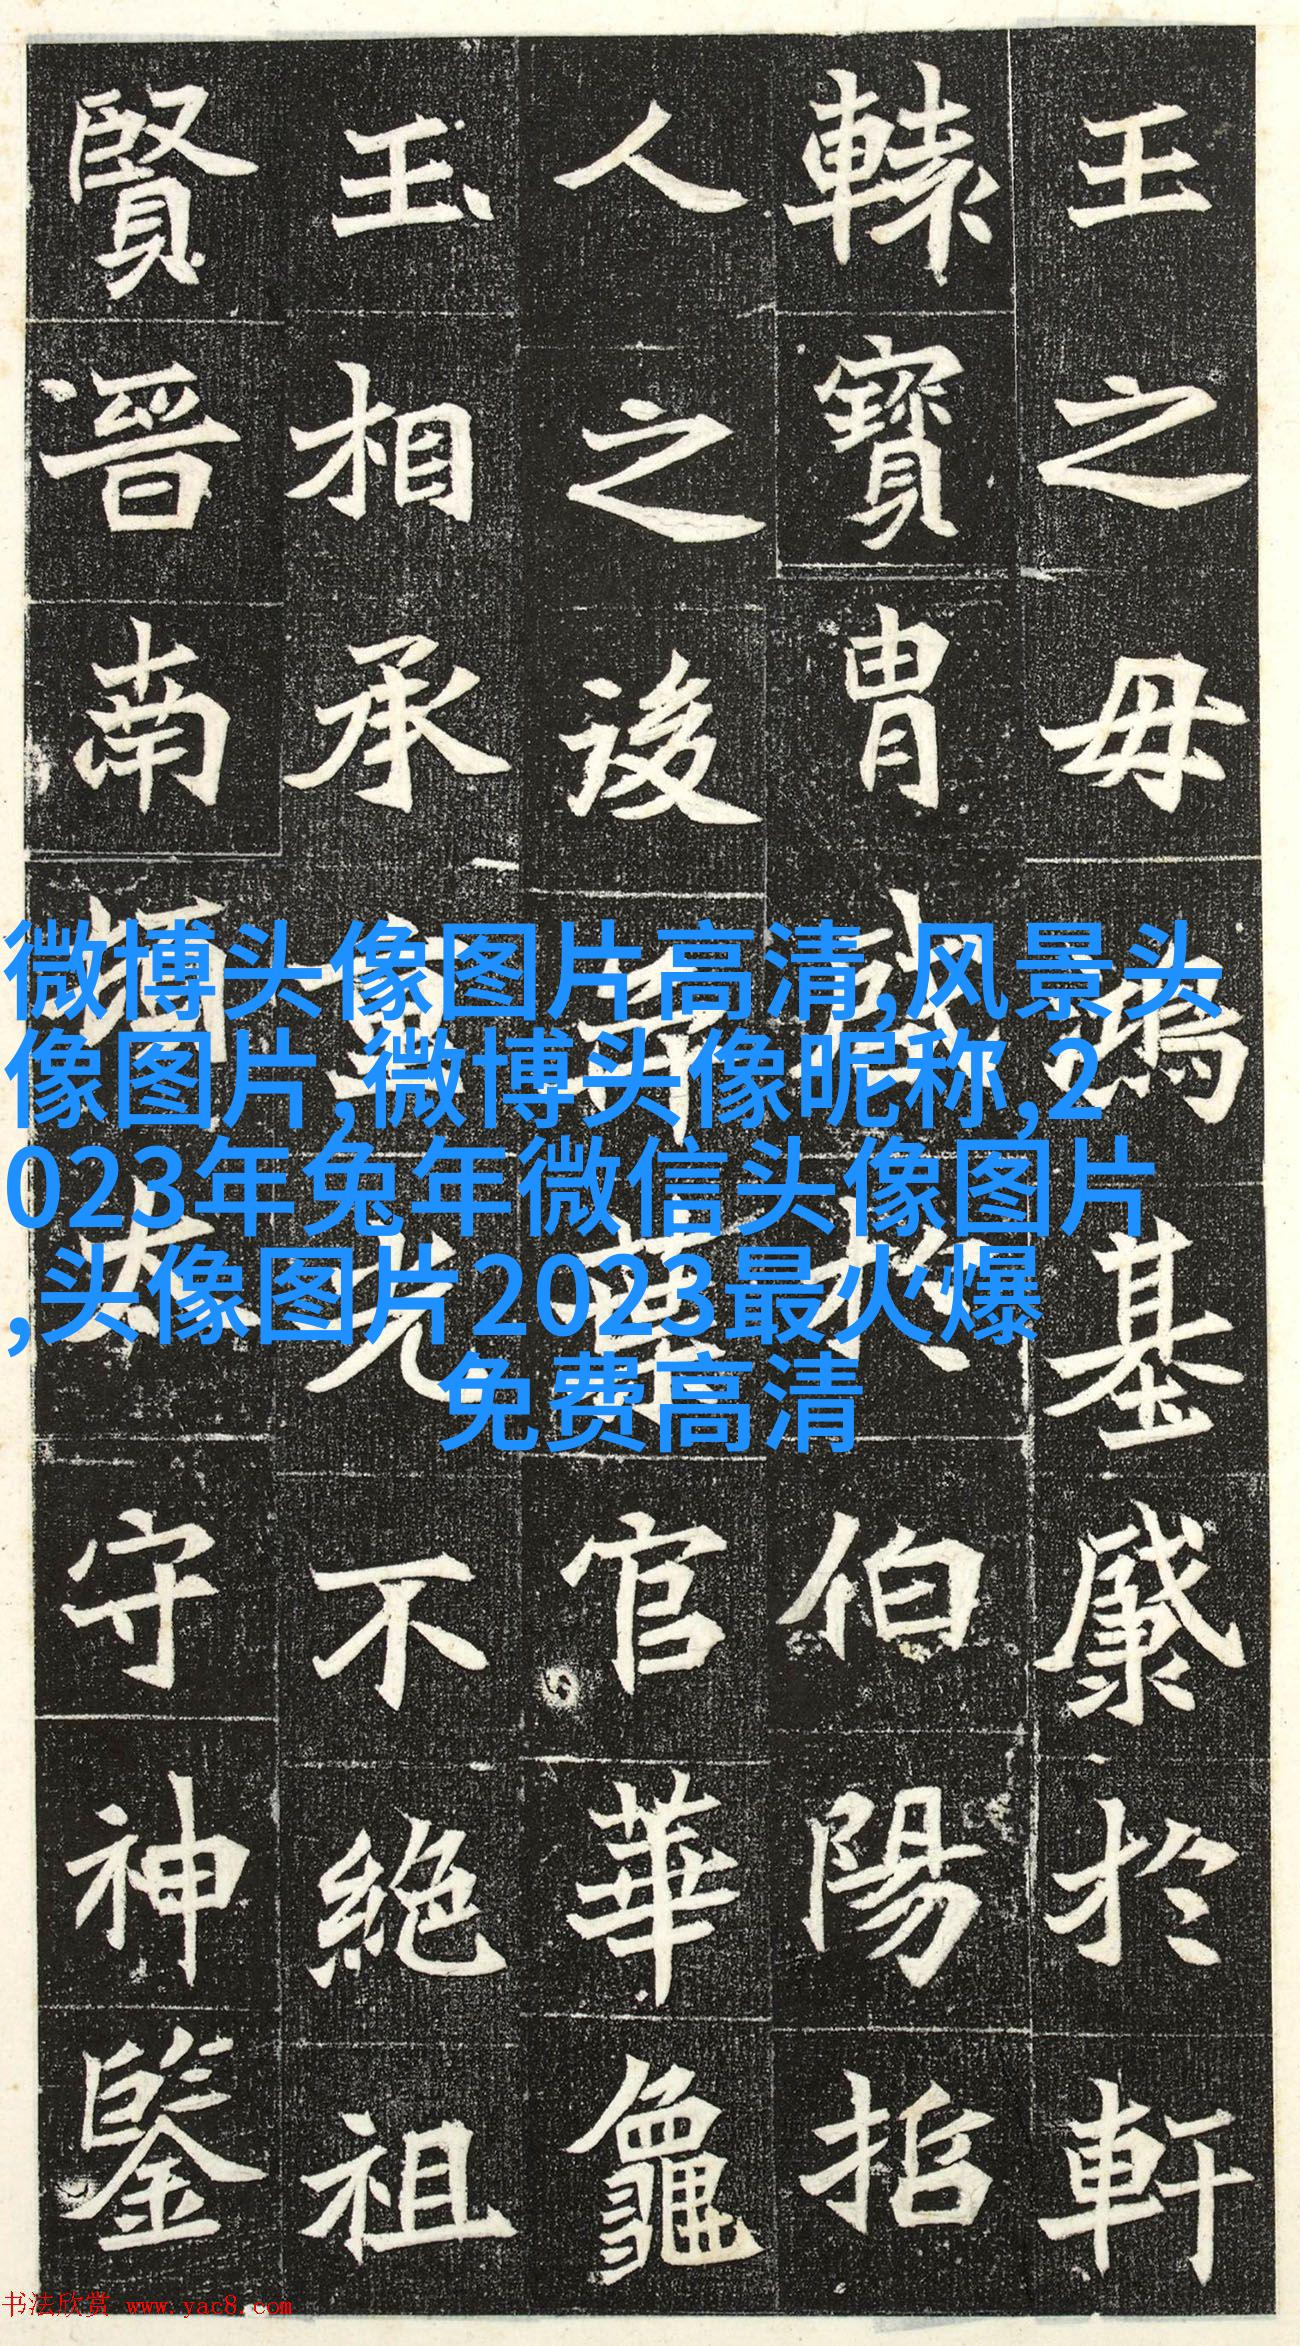 王之毋基於軒
轅寶冑於伯陽指
人之後官華龜
玉相承重光不絕祖
賢晉南頓太守神鑒
微博头像图片高清,风景头
像图片,微博头像昵称,2
023年兔年微信头像图片
,头像图片2023最火爆
免费高清
书法欣赏 www.yac8.com